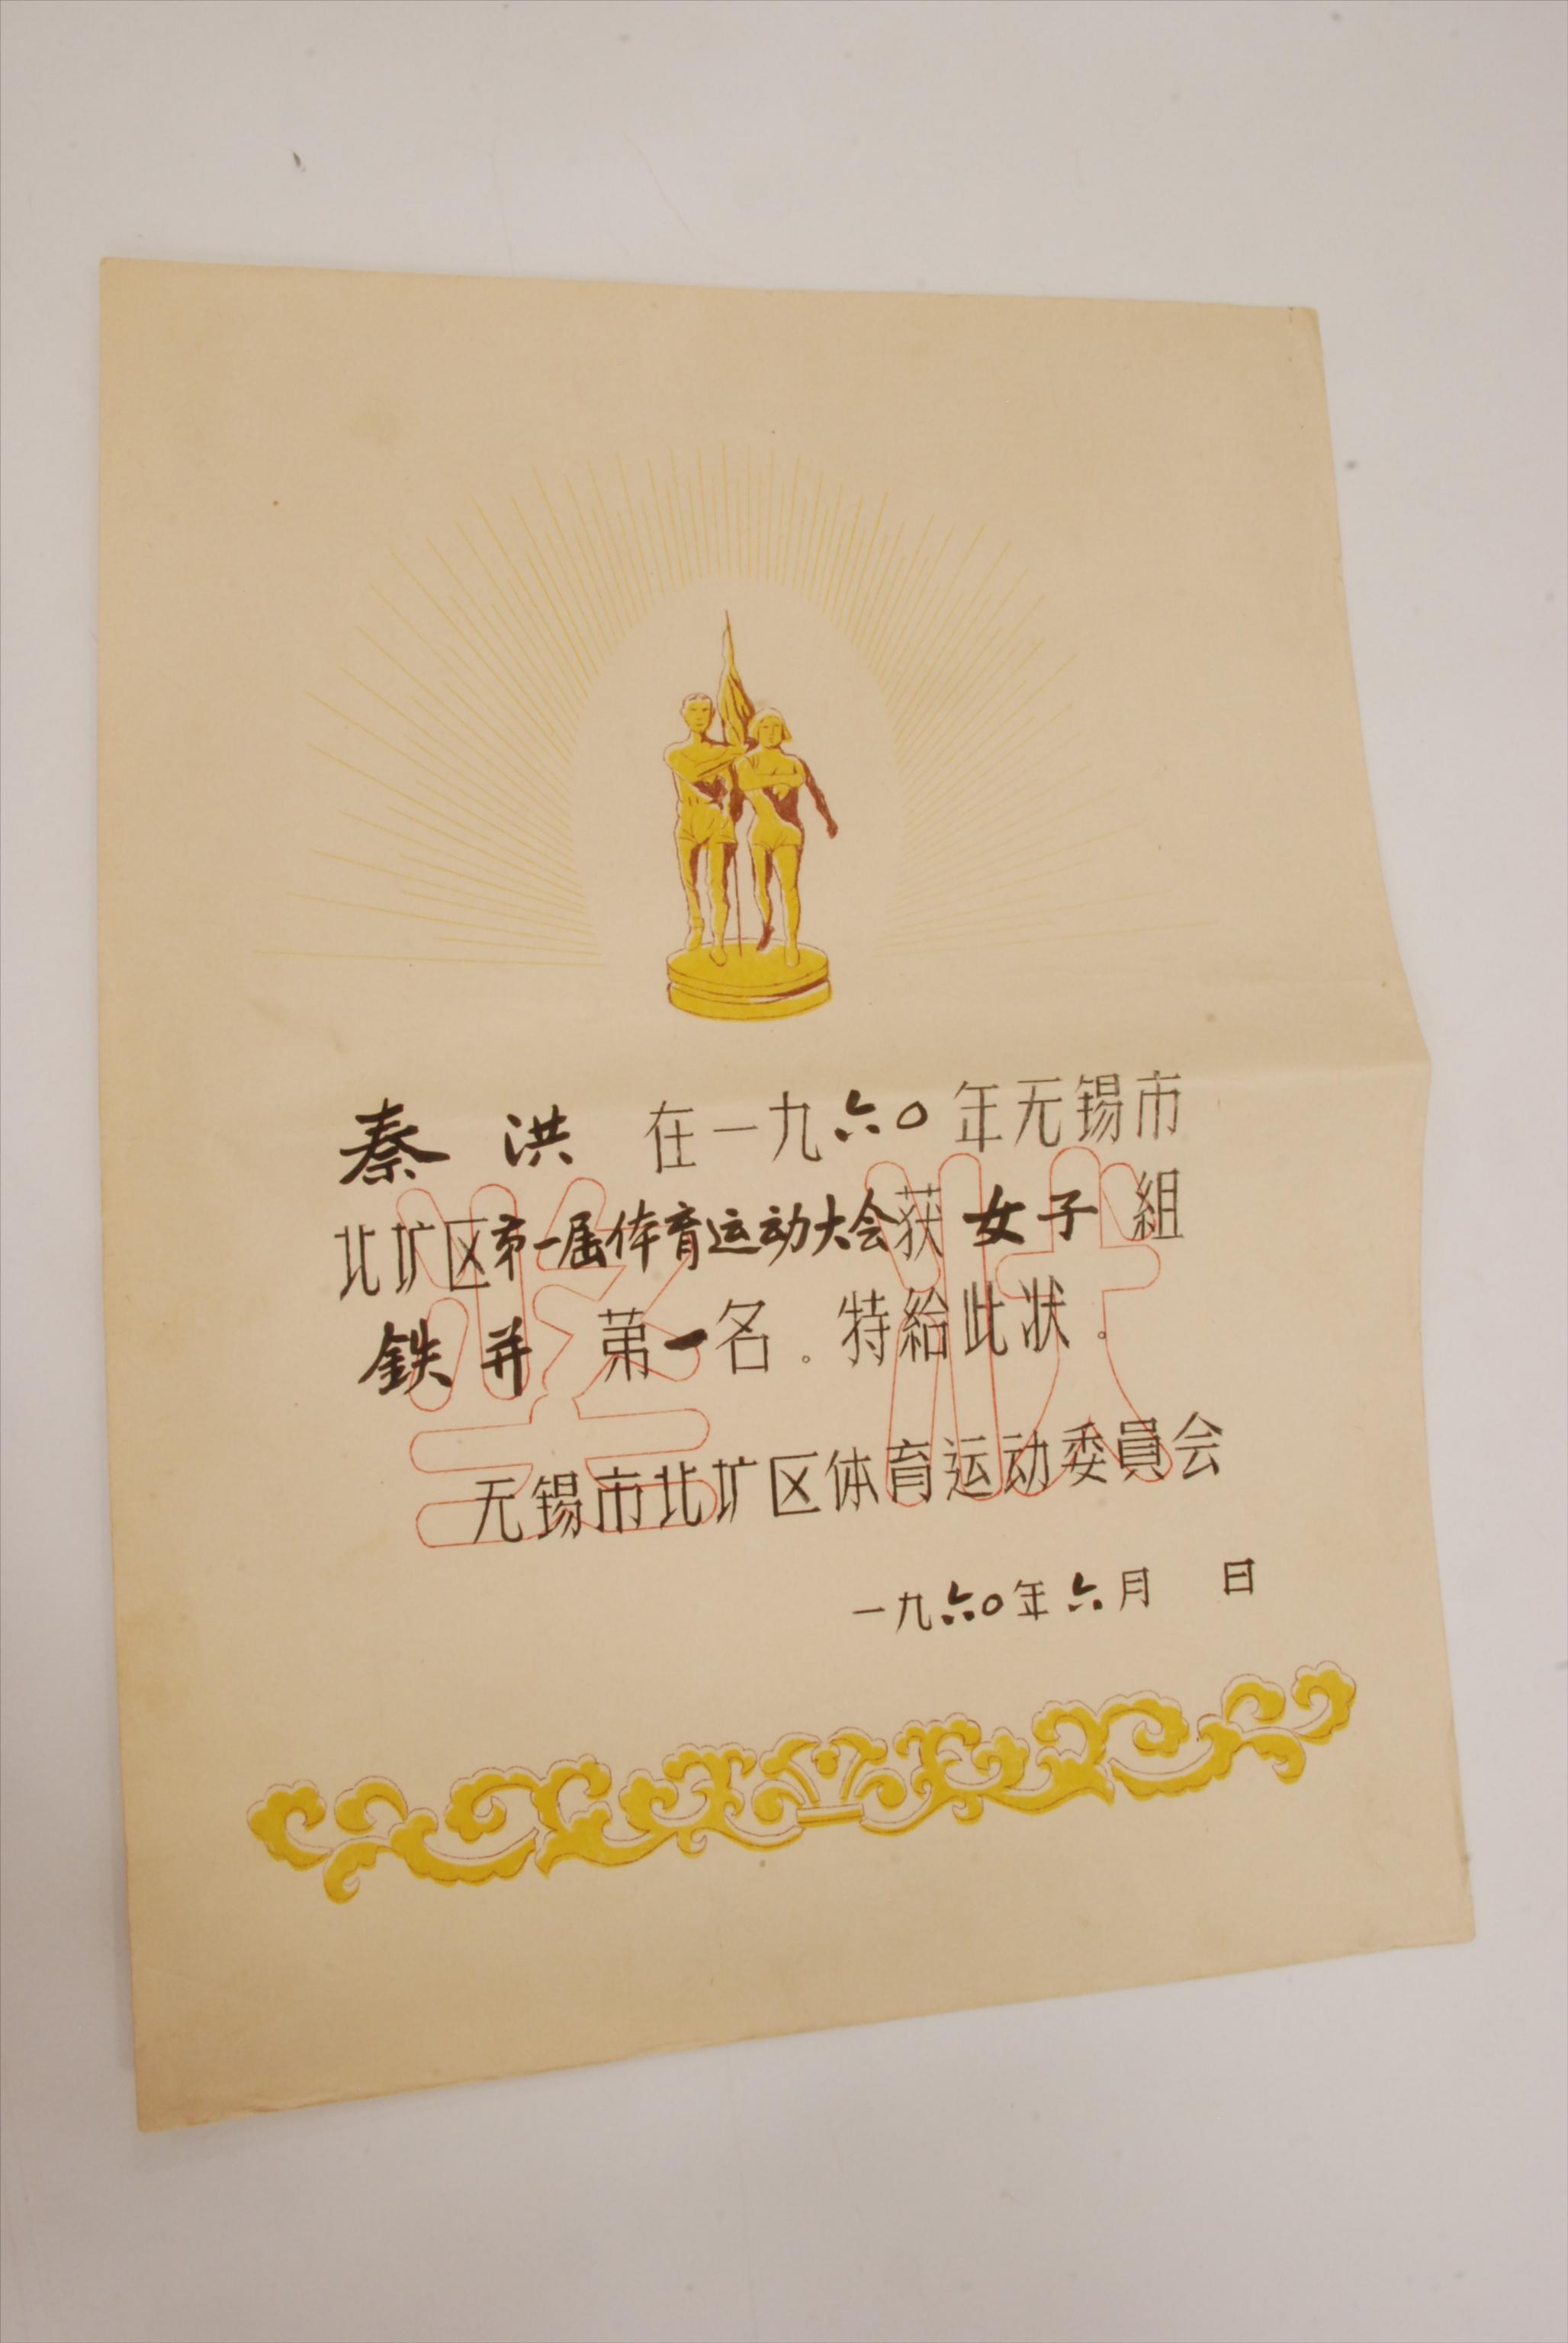 秦 洪 在一九六〇年无锡市
北圹区第一届体育运动大会获 女子 組
鉄 并 苐一名。特給此状。
奖状
无锡市北圹区体育运动委員会
一九六〇年六月 日